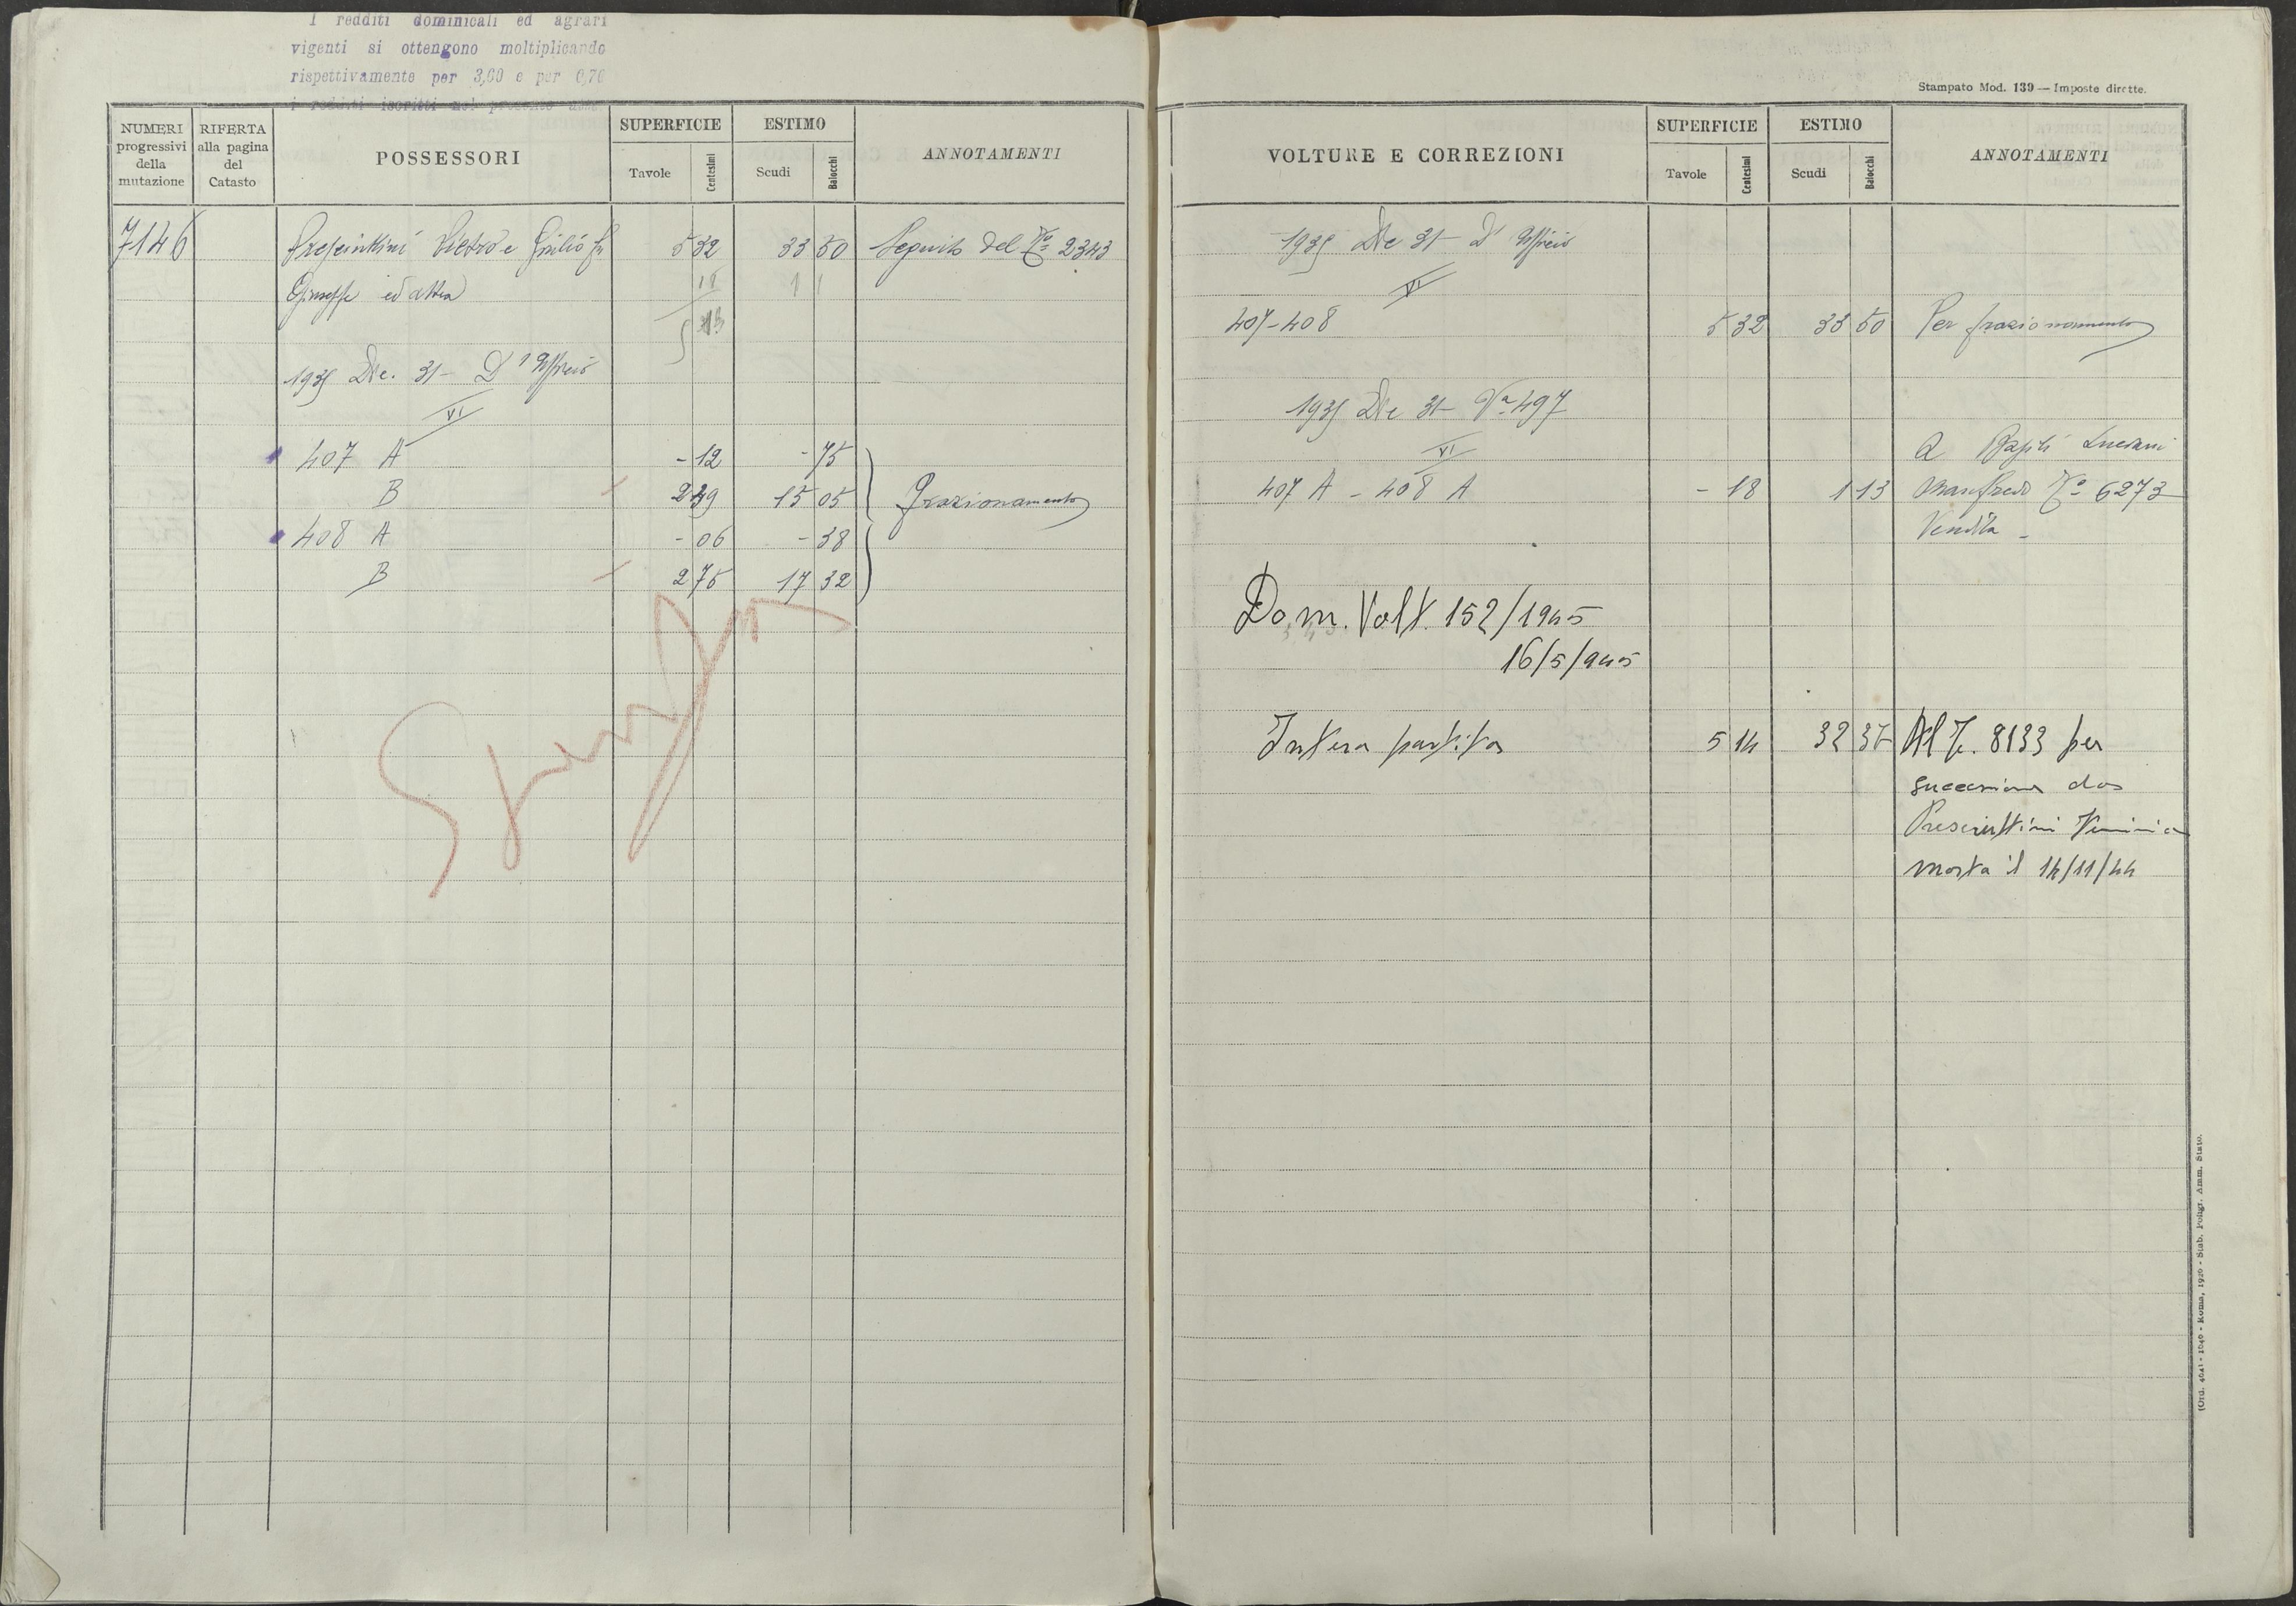 I redditi dominicali ed agrari
vigenti si ottengono moltiplicando
rispettivamente per 3,00 e per 0,70
i redditi iscritti nel presente
NUMERI progressivi della mutazione
RIFERTA alla pagina del Catasto
POSSESSORI
SUPERFICIE
Tavole Centesimi
ESTIMO
Scudi Baiocchi
ANNOTAMENTI
7146 Presciuttini Pietro e Giulio fu 5 32 33 50 Seguito del No 2343
Giuseppe ed altra 18 1 1
1935 Dic. 31 - D'Ufficio
VI
407 A - 12 - 75
B 2 39 15 05 Frazionamento
408 A - 06 - 38
B 2 75 17 32
Stampato Mod. 139 — Imposte dirette.
VOLTURE E CORREZIONI
SUPERFICIE
Tavole Centesimi
ESTIMO
Scudi Baiocchi
ANNOTAMENTI
1935 Dic 31 - D'Ufficio
VI
407-408 5 32 33 50 Per frazionamento
1935 Dic 31 - Va 497
VI
A Luciani
407 A - 408 A - 18 1 13 Manfredo No 6273
Vendita -
Dom. Volt. 152/1945
16/5/945
Intera partita 5 14 32 37 Al N. 8133 per
successione da
Presciuttini
morta il 14/11/44
(Ord. 4041 - 1040 - Roma, 1926 - Stab. Poligr. Amm. Stato.